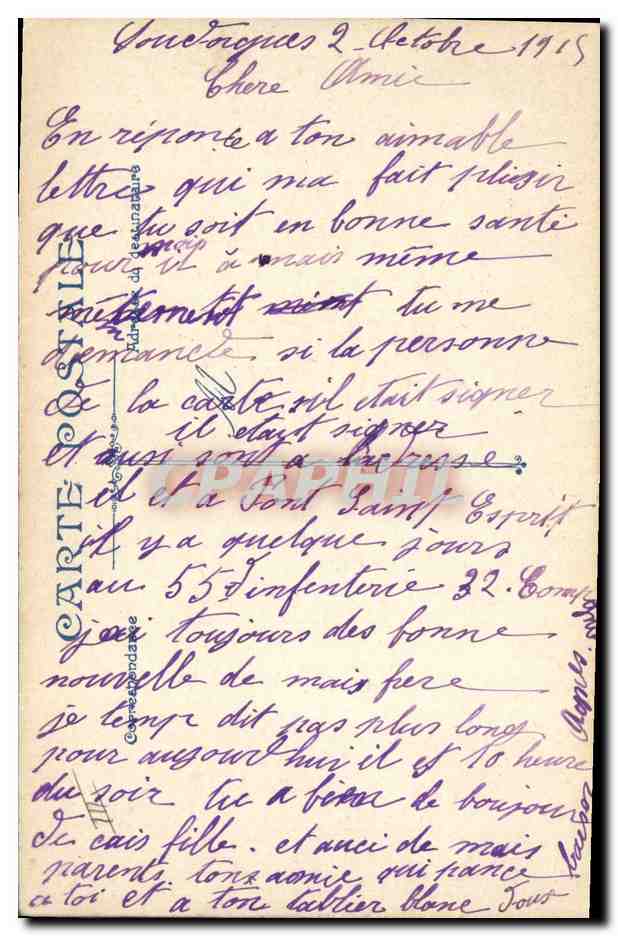 2 Octobre 1915
Chere Amie
En réponse a ton aimable
lettre qui ma fait plaisir
que tu soit en bonne santé
pour mais
il à mais même
tu me
demande si la personne
de la carte sil etait signer
il etayt signer
et sont a ladresse
il et a Pont Saint Esprit
il y a quelque jours
au 55 dinfenterie 32. Comp
jai toujours des bonne
nouvelle de mais frere
je temp dit pas plus long
pour aujourdhui il et 10 heure
du soir tu a bien de boujour
de cais fille. et auci de mais
parents tonz amie qui pance
a toi et a ton tablier blanc Doux
baiser Agnes
CARTE POSTALE
Correspondance
Adresse du destinataire
CPAPHIL